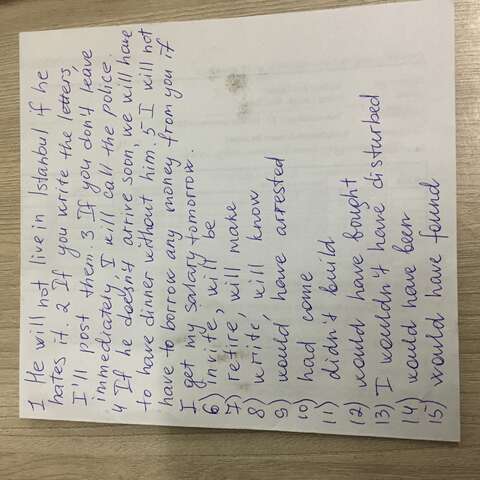 1 He will not live in Istanbul if he
hates it. 2 If you write the letters,
I'll post them. 3 If you don't leave
immediately, I will call the police.
4 If he doesn't arrive soon, we will have
to have dinner without him. 5 I will not
have to borrow any money from you if
I get my salary tomorrow.
6) invite, will be
7) retire, will make
8) write, will know
9) would have arrested
10) had come
11) didn't build
12) would have bought
13) I wouldn't have disturbed
14) would have been
15) would have found